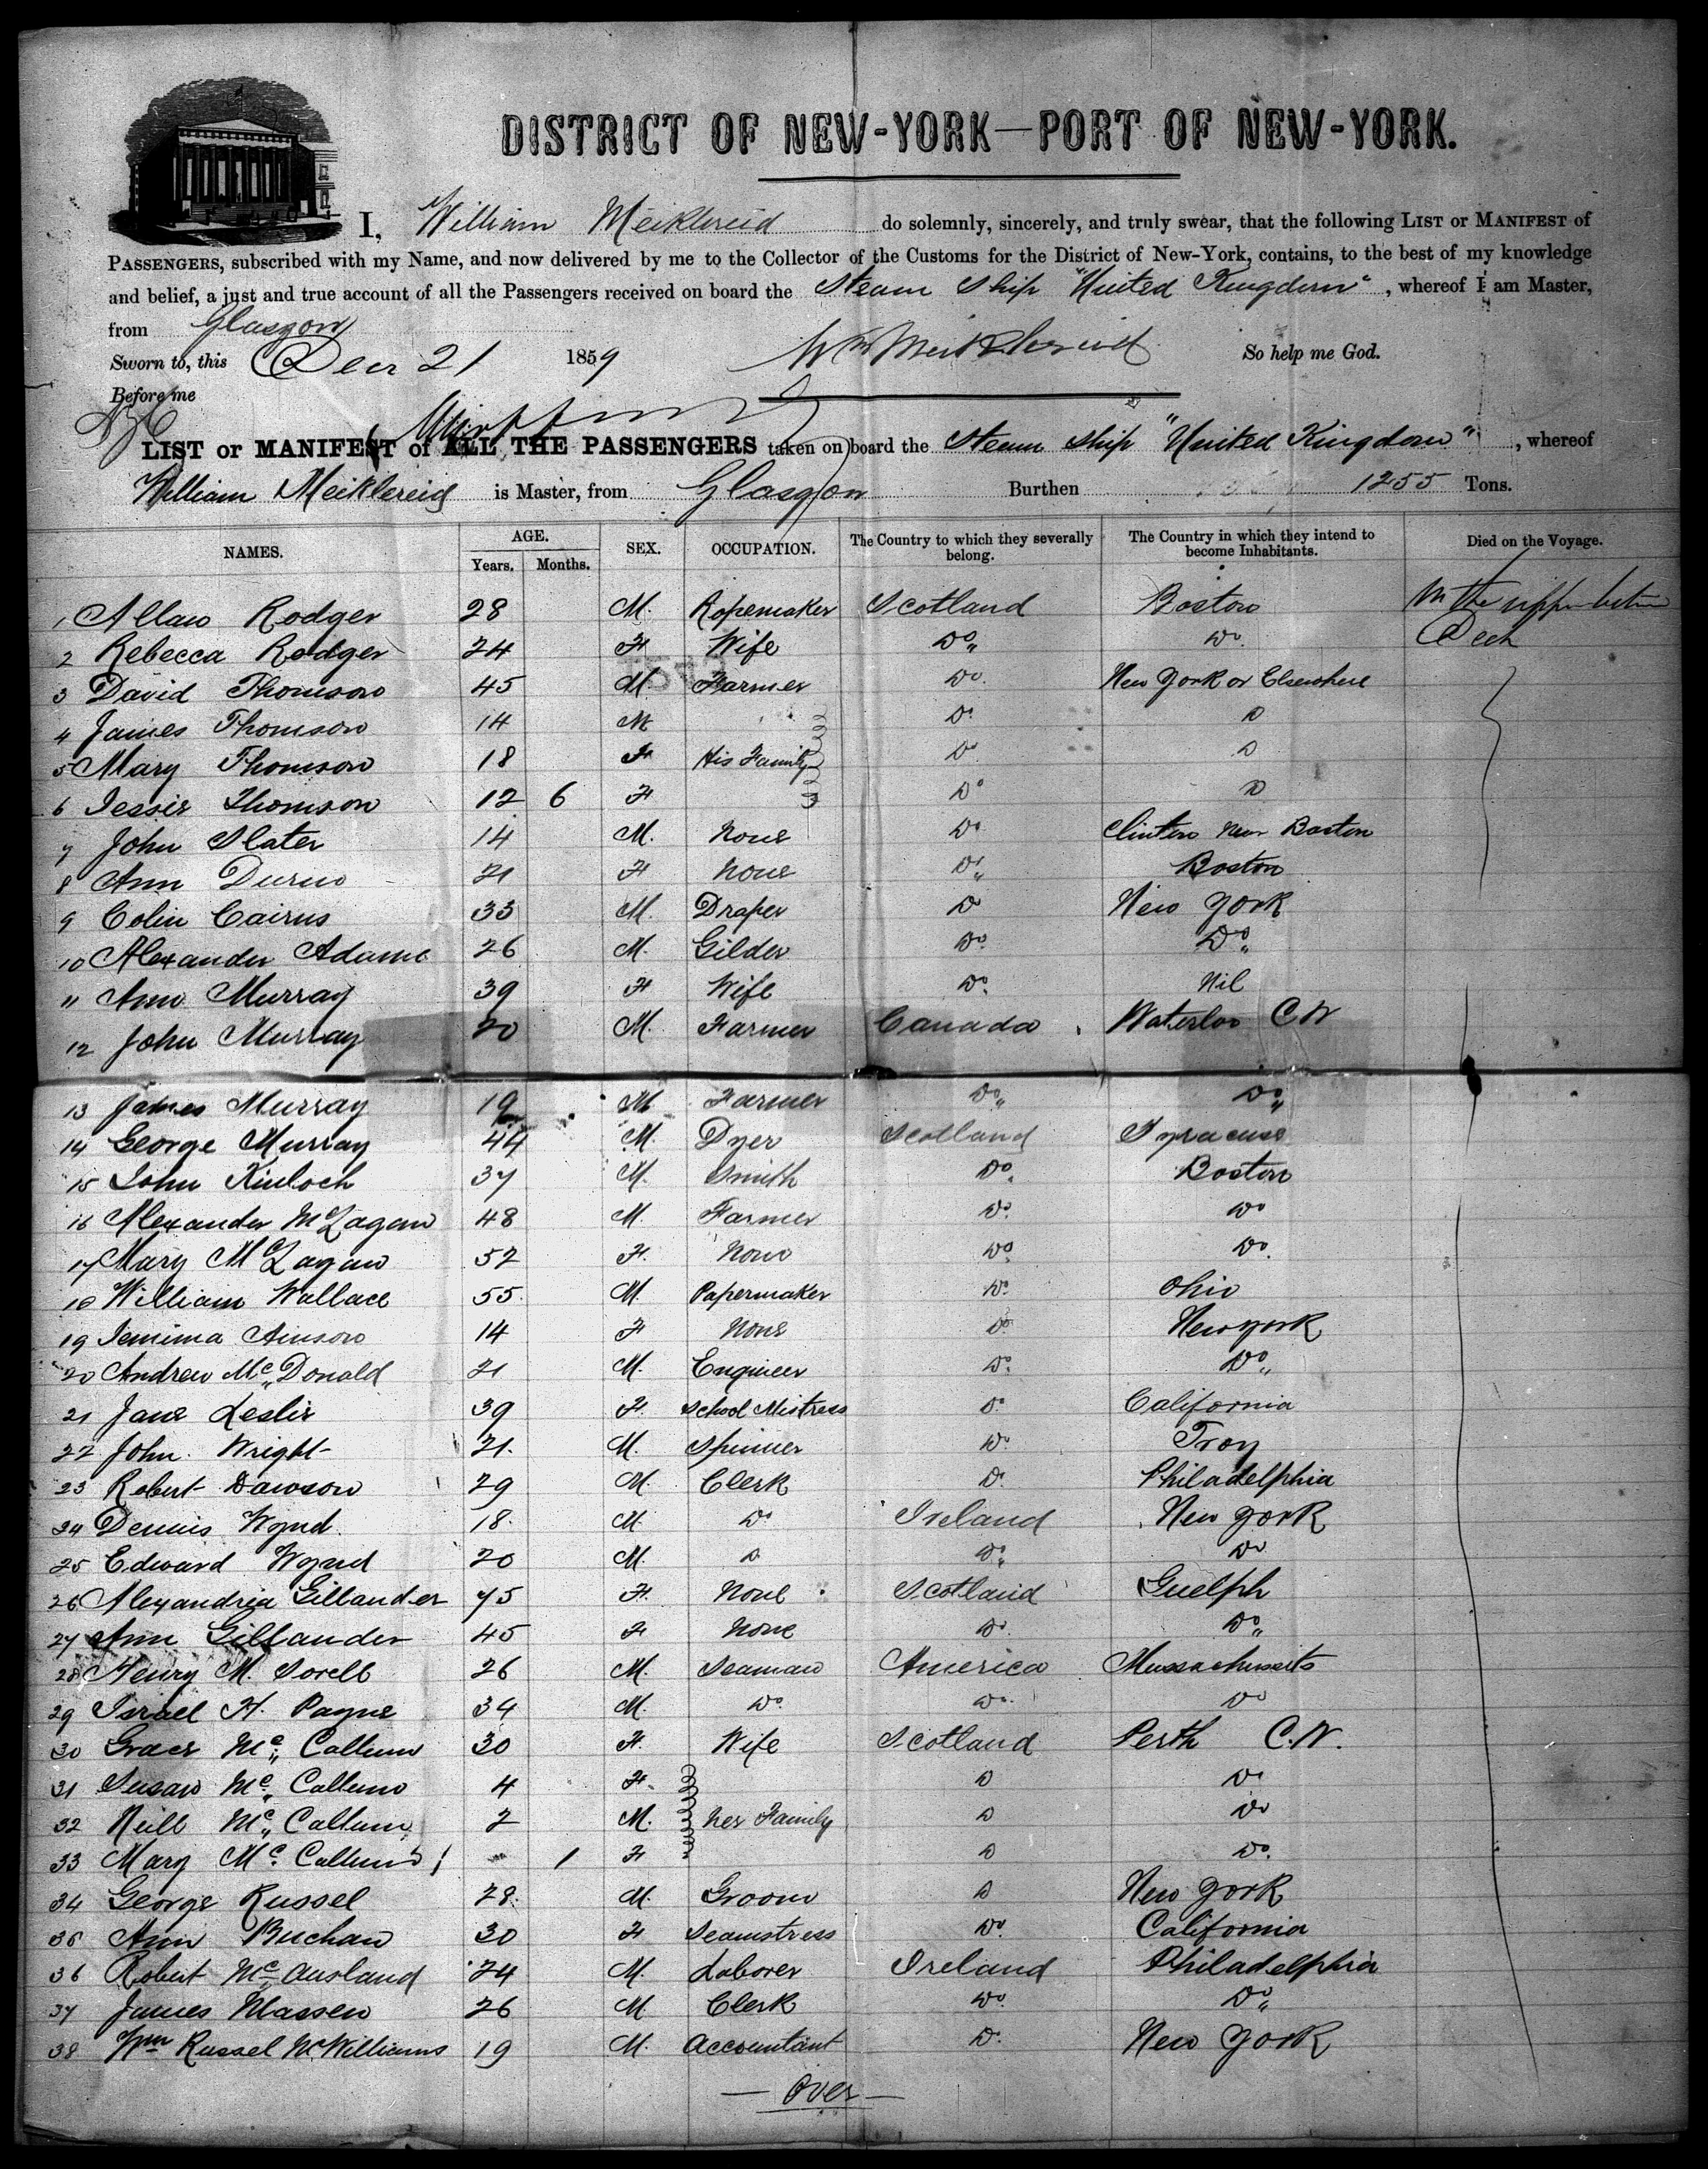 DISTRICT OF NEW-YORK—PORT OF NEW-YORK.
I, William Meiklereid do solemnly, sincerely, and truly swear, that the following LIST or MANIFEST of
PASSENGERS, subscribed with my Name, and now delivered by me to the Collector of the Customs for the District of New-York, contains, to the best of my knowledge
and belief, a just and true account of all the Passengers received on board the Steam Ship "United Kingdom", whereof I am Master,
from Glasgow
Sworn to, this Decr 21 1859 Wm Meiklereid So help me God.
Before me
LIST or MANIFEST of ALL THE PASSENGERS taken on board the Steam Ship "United Kingdom", whereof
William Meiklereid is Master, from Glasgow Burthen 1255 Tons.
NAMES. AGE. Years. Months. SEX. OCCUPATION. The Country to which they severally belong. The Country in which they intend to become Inhabitants. Died on the Voyage.
1 Allan Rodger 28 M. Ropemaker Scotland Boston
2 Rebecca Rodger 24 F Wife Do Do Deck
3 David Thomson 45 M. Farmer Do New York or Elsewhere
4 James Thomson 14 M Do D
5 Mary Thomson 18 F His Family Do D
6 Jessie Thomson 12 6 F Do D
7 John Slater 14 M. None Do Clinton near Boston
8 Ann Durno 21 F None Do Boston
9 Colin Cairns 33 M. Draper Do New York
10 Alexander Adams 26 M. Gilder Do Do
11 Ann Murray 39 F Wife Do Nil
12 John Murray 20 M. Farmer Canada Waterloo C W
13 James Murray 19 M Farmer Do Do
14 George Murray 44 M. Dyer Scotland Syracuse
15 John Kinloch 37 M. Smith Do Boston
16 Alexander McLagan 48 M. Farmer Do Do
17 Mary McLagan 52 F. None Do Do
18 William Wallace 55 M. Papermaker Do Ohio
19 Jemima Ainson 14 F None Do New York
20 Andrew Mc Donald 21 M. Engineer Do Do
21 Jane Leslie 39 F. School Mistress Do California
22 John Wright 21. M. Spinner Do Troy
23 Robert Dawson 29 M. Clerk Do Philadelphia
24 Dennis Wynd 18. M. Do Ireland New York
25 Edward Wynd 20 M. D Do Do
26 Alexandria Gillander 75 F. None Scotland Guelph
27 Ann Gillander 45 F None Do Do
28 Henry M. Sorell 26 M. Seaman America Massachusetts
29 Israel H. Payne 34 M. Do Do Do
30 Grace Mc Callum 30 F. Wife Scotland Perth C.W.
31 Susan Mc Callum 4 F. D Do
32 Neill Mc Callum 2 M. Her Family D Do
33 Mary Mc Callum 1 F D Do
34 George Russel 28. M. Groom D New York
35 Ann Buchan 30 F Seamstress Do California
36 Robert Mc Ausland 24 M. Laborer Ireland Philadelphia
37 James Massen 26 M Clerk Do Do
38 Wm Russel McWilliams 19 M. Accountant Do New York
— Over —